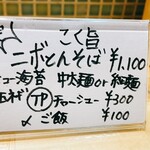 こく旨
ニボとんそば ¥1,100
海苔 中太麺or細麺
TP チャーシュー ¥300
〆ご飯 ¥100